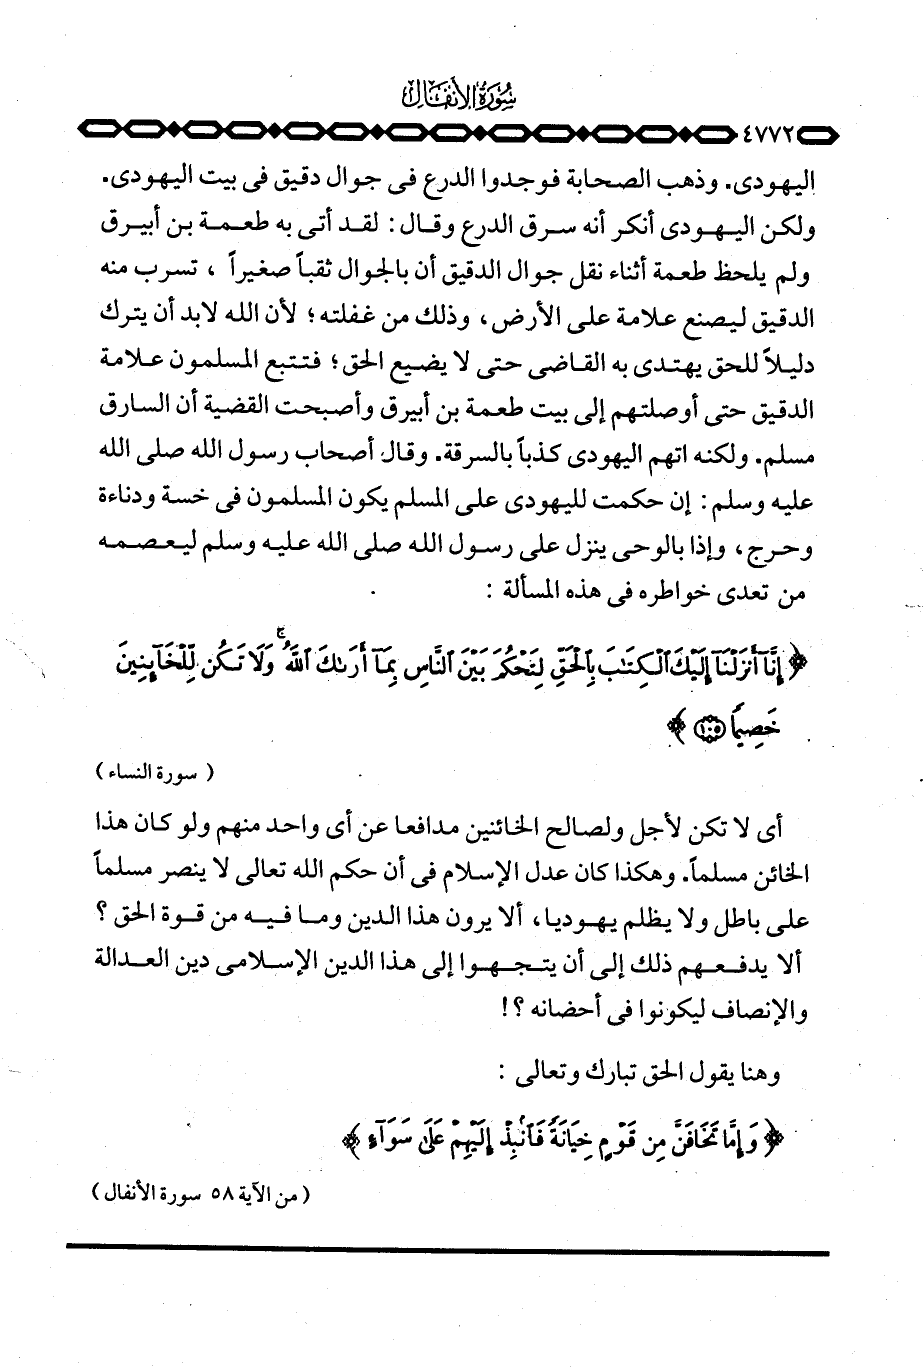 سورة الأنفال
٤٧٧٢
اليهودى. وذهب الصحابة فوجدوا الدرع فى جوال دقيق فى بيت اليهودى.
ولكن اليهودى أنكر أنه سرق الدرع وقال : لقد أتى به طعمة بن أبيرق
ولم يلحظ طعمة أثناء نقل جوال الدقيق أن بالجوال ثقباً صغيراً ، تسرب منه
الدقيق ليصنع علامة على الأرض، وذلك من غفلته؛ لأن الله لابد أن يترك
دليلاً للحق يهتدى به القاضى حتى لا يضيع الحق؛ فتتبع المسلمون علامة
الدقيق حتى أوصلتهم إلى بيت طعمة بن أبيرق وأصبحت القضية أن السارق
مسلم. ولكنه اتهم اليهودى كذباً بالسرقة. وقال أصحاب رسول الله صلى الله
عليه وسلم : إن حكمت لليهودى على المسلم يكون المسلمون فى خسة ودناءة
وحرج، وإذا بالوحى ينزل على رسول الله صلى الله عليه وسلم ليعصمه
من تعدى خواطره فى هذه المسألة :
﴿ إِنَّآ أَنزَلْنَآ إِلَيْكَ ٱلْكِتَٰبَ بِٱلْحَقِّ لِتَحْكُمَ بَيْنَ ٱلنَّاسِ بِمَآ أَرَىٰكَ ٱللَّهُ ۚ وَلَا تَكُن لِّلْخَآئِنِينَ
خَصِيمًا ١٠٥ ﴾
( سورة النساء )
أى لا تكن لأجل ولصالح الخائنين مدافعا عن أى واحد منهم ولو كان هذا
الخائن مسلماً. وهكذا كان عدل الإسلام فى أن حكم الله تعالى لا ينصر مسلماً
على باطل ولا يظلم يهوديا، ألا يرون هذا الدين وما فيه من قوة الحق ؟
ألا يدفعهم ذلك إلى أن يتجهوا إلى هذا الدين الإسلامى دين العدالة
والإنصاف ليكونوا فى أحضانه ؟!
وهنا يقول الحق تبارك وتعالى :
﴿ وَإِمَّا تَخَافَنَّ مِن قَوْمٍ خِيَانَةً فَٱنۢبِذْ إِلَيْهِمْ عَلَىٰ سَوَآءٍ ﴾
( من الآية ٥٨ سورة الأنفال )